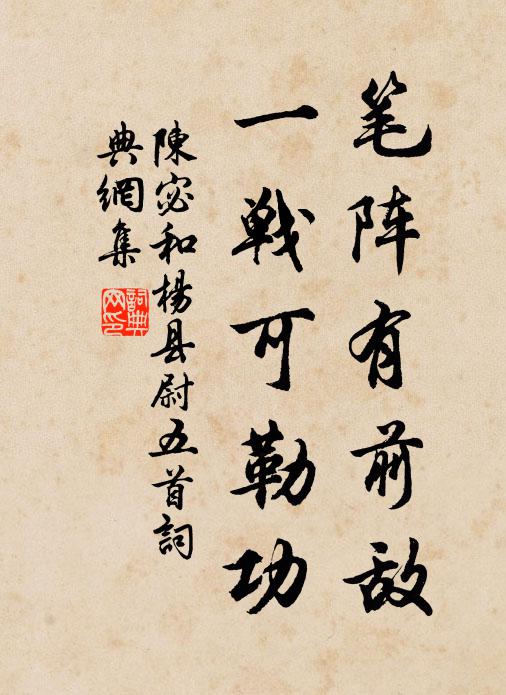 笔阵有前敌
一戦可勒功
陳宓和楊县尉五首詞
典網集
詞典
网印